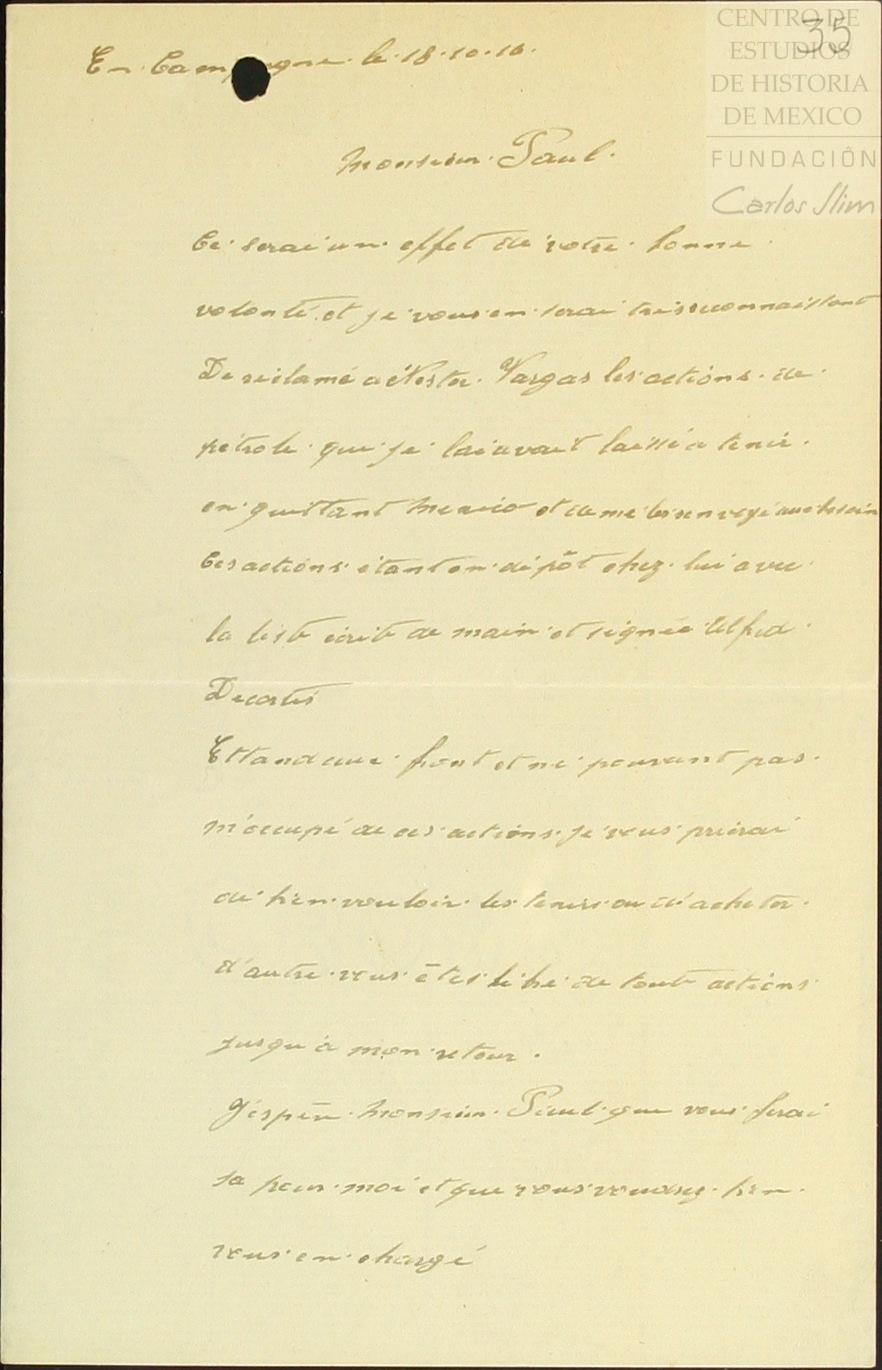 CENTRO DE
ESTUDIOS
DE HISTORIA
DE MEXICO
FUNDACIÓN
Carlos Slim
35
En Campagne le 18.10.16.
Monsieur Paul.
Ce serai un effet de votre bonne
volonté et je vous en serai tres reconnaissant
De reclamé a Nestor Vargas les actions de
pétrole que je lai avait laissé a tenir.
en quittant Mexico et de me les envoyé au besoin
Ces actions étant en dépôt chez lui avec
la liste écrite de main et signée Alfred
Decortés
Ettand aux front et ne pouvant pas
m'occupé de ces actions je vous prierai
de bien vouloir les tenirs ou d'acheter
d'autre vous êtes libre de toute actions
jusqu'à mon retour.
J'espère Monsieur Paul que vous ferai
sa pour moi et que vous voudrez bien
vous en chargé